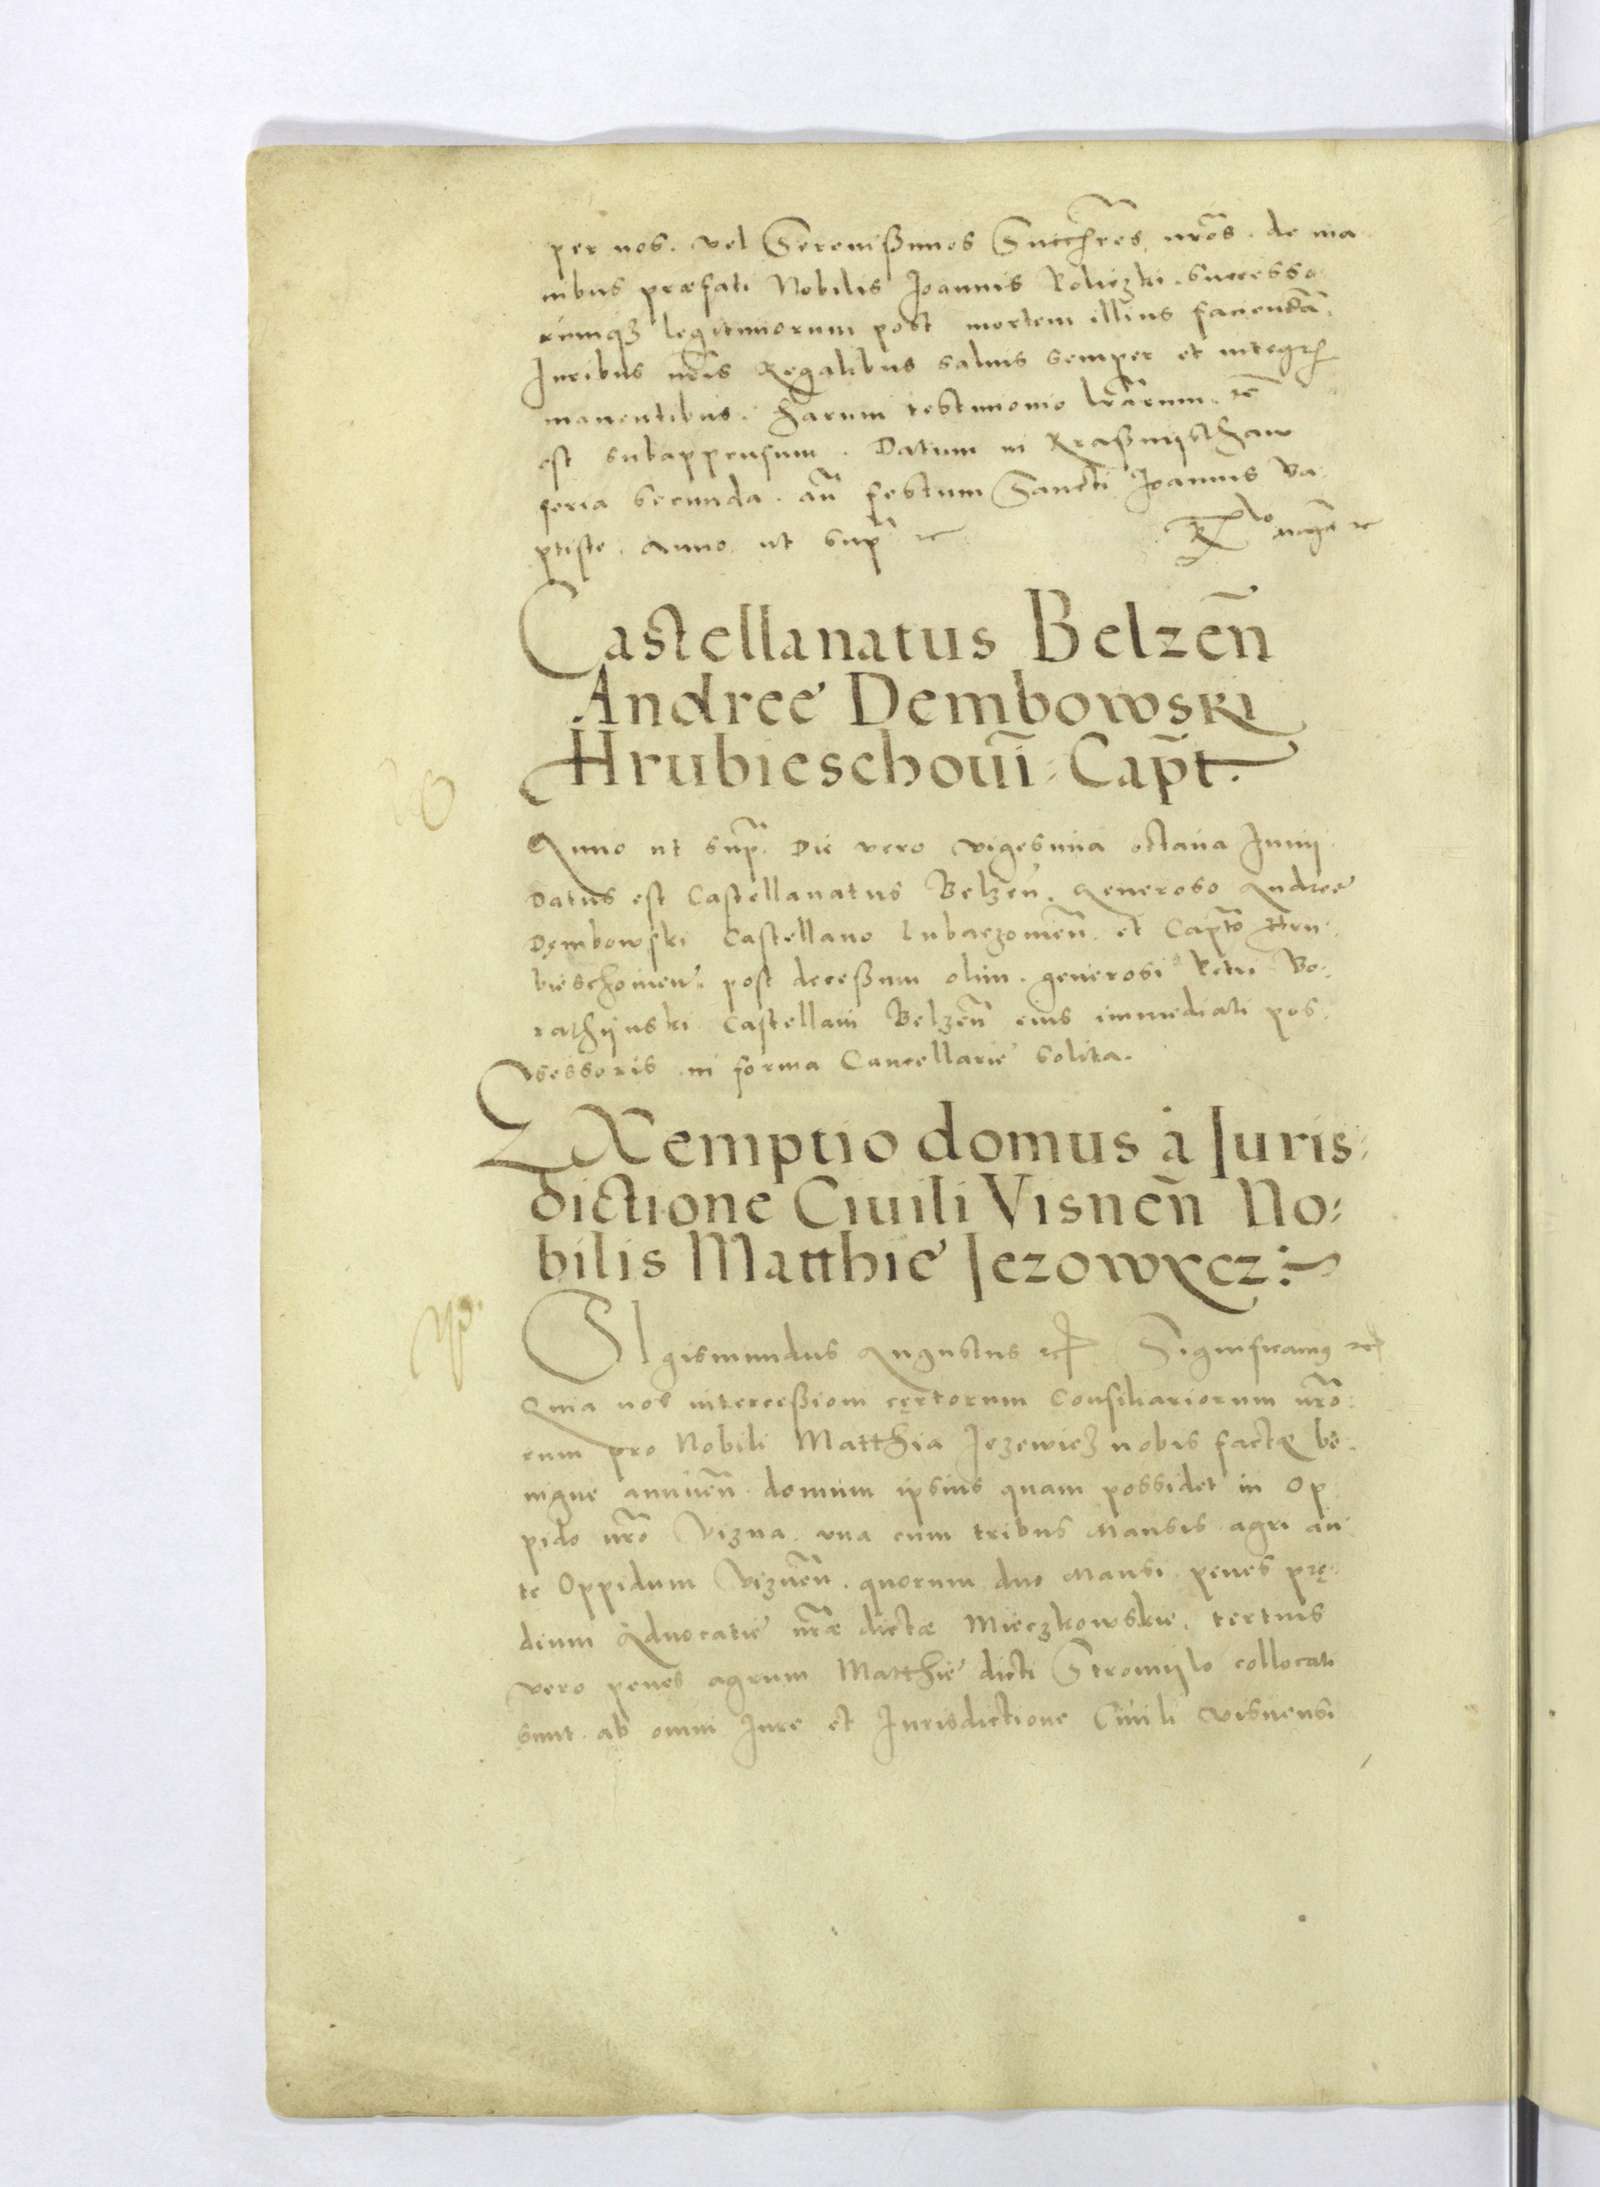 per nos. vel Serenissimos Succrẽs nr̃os. de ma
nibus præfati Nobilis Joannis Roliczki. successo
rumqȝ legitimorum post mortem illius faciendã.
Juribus nr̃is Regalibus saluis semper et integris
manentibus. Harum testimonio lr̃arum. rc̃
est subappensum. Datum in Kraßnijsthaw
feria secunda. añ festum Sancti Joannis Ba
ptiste. Anno. ut supᵃ rc
Castellanatus Belzeñ
Andreę Dembowski
Hrubieschouĩ. Cap̃t.
Anno ut supᵃ. Die vero vigesima octaua Junij.
Datus est Castellanatus Belzeñ. Generoso Andreę
Dęmbowski Castellano Lubaczouieñ. et Cap̃to Hru
bieschouieñ. post decessum olim. generosi Petri Bo.
rathijnski. Castellani Belzeñ eius immediati pos
sessoris. in forma Cancellarię solita.
EXemptio domus à Juris
dictione Ciuili Visneñ No:
bilis Matthię Jezowycz:
SIgismundus Augustus rc Significamus rc
Quia nos intercessioni certorum Consiliariorum nr̃o
rum pro Nobili Matthia Jezewicz nobis factę be.
nigne annueñ. domum ipsius quam possidet in Op
pido nr̃o Vizna. vna cum tribus Mansis agri an
te Oppidum Vizneñ. quorum duo Mansi penes prę
dium Aduocatię nr̃æ dictæ Mieczkowskie, tertius
vero penes agrum Matthię dicti Stromijlo collocati
sunt. ab omni Jure et Jurisdictione Ciuili Visnensi